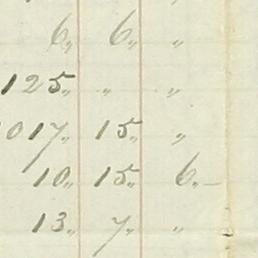 6,, 6,, ,,
125,, ,, ,,
017,, 15,, ,,
10,, 15,, 6,,–
13,, 7,, ,,